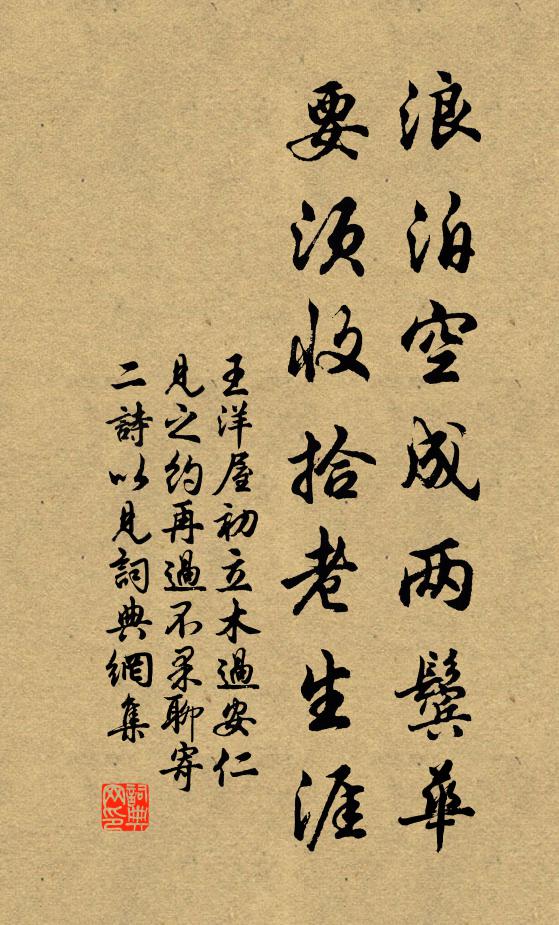 浪泊空成两鬓华
要须收拾老生涯
王洋屋初立木過安仁
見之約再過不果聊寄
二詩以見詞典網集
詞典
网印